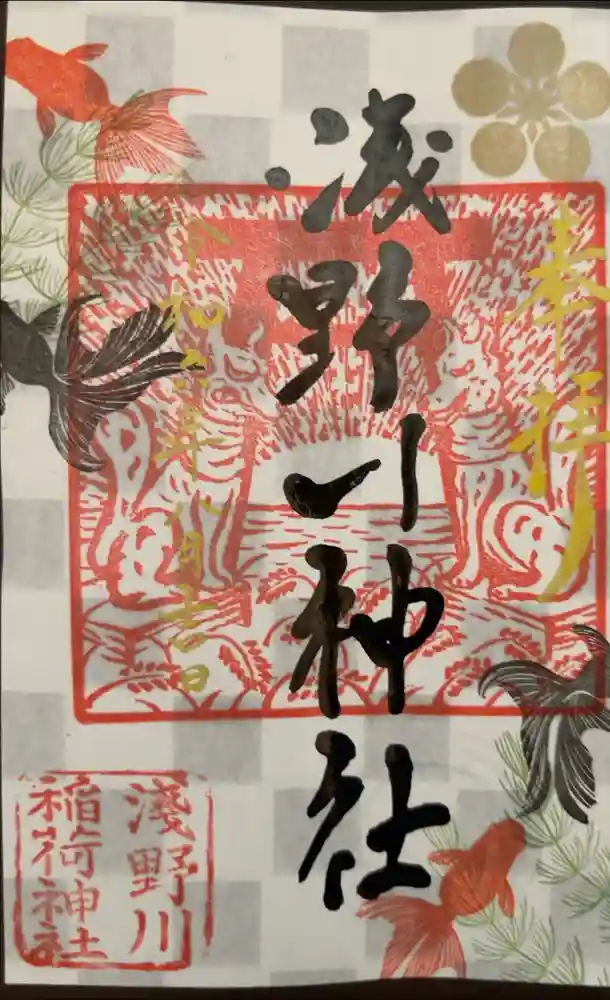 奉拝
浅野川神社
令和六年八月吉日
淺野川
稲荷神社